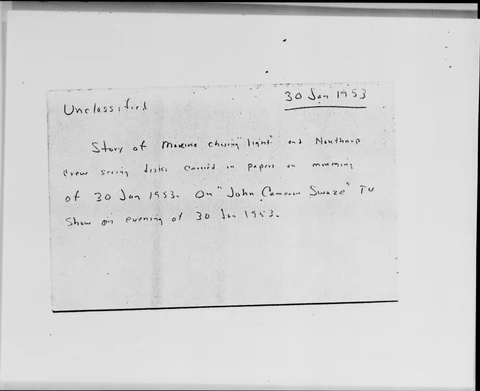 30 Jan 1953
Unclassified
Story of Marine chasing "light" and Northrop
Crew seeing disks carried in papers on morning
of 30 Jan 1953. On "John Cameron Swaze" TV
Show on evening of 30 Jan 1953.